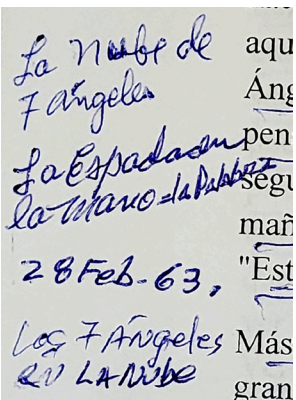 La Nube de
7 ángeles
La Espada en
la mano = la Palabra
28 Feb. 63,
Los 7 ANgeles
eN LA Nube
aqu
Áng
pen
segu
mañ
"Est
Más
gran